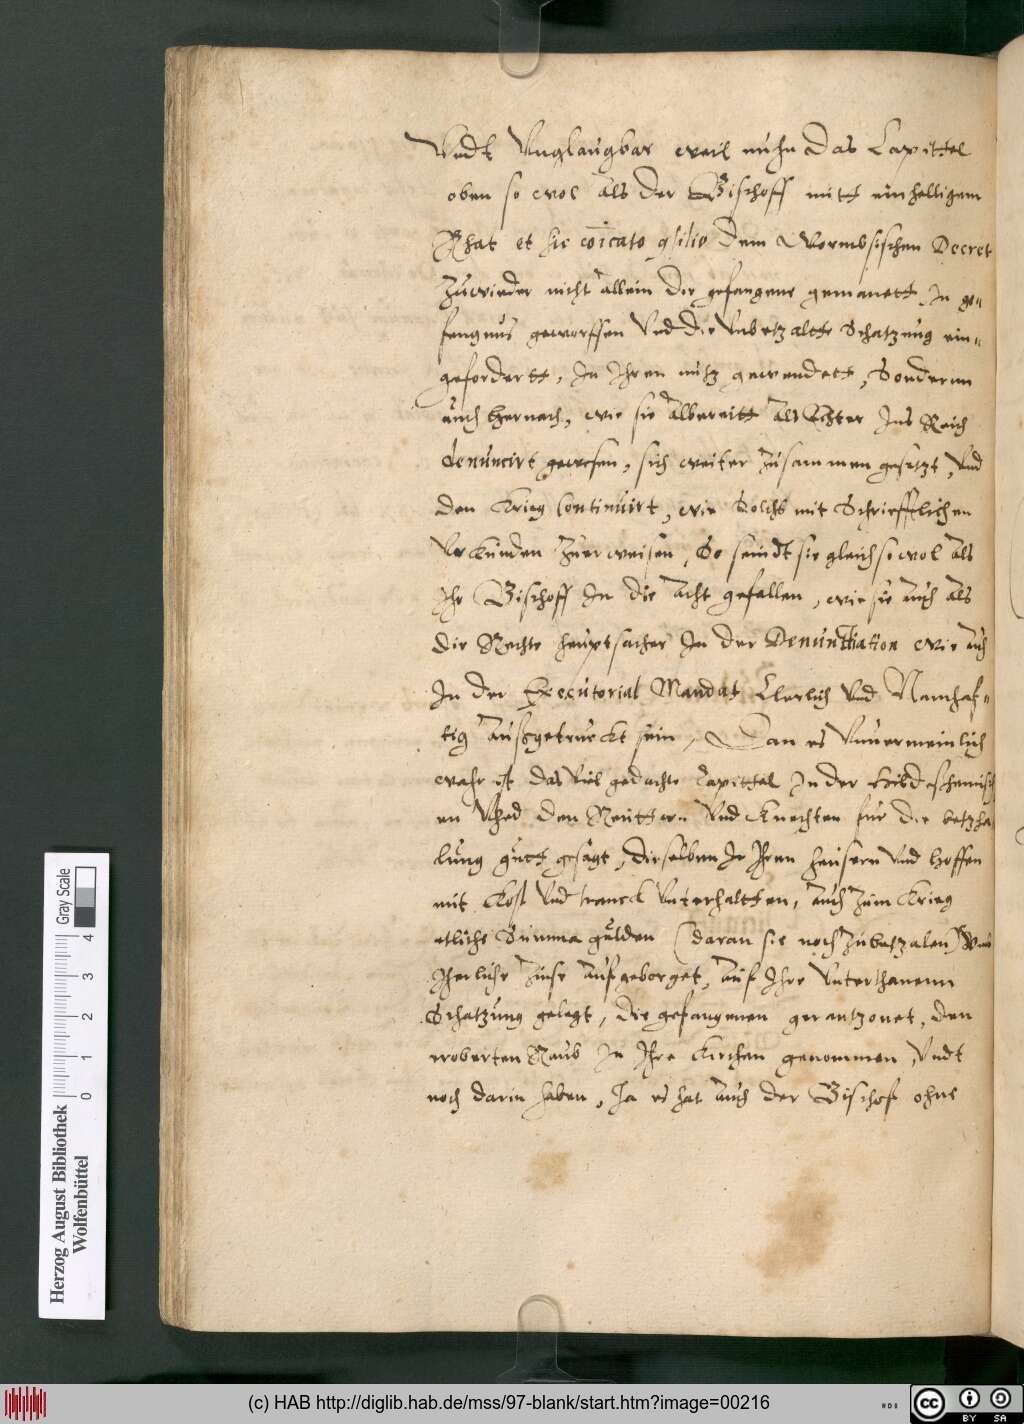 Vndt Vnglaugbar weil nuhn das Capittel
eben so wol als der Bischoff mitt einhelligem
Rhat et sic coicato gsilio dem Wormbsischen Decret
zuwieder nicht allein die gefangene gemanett, In ge„
fengnus geworffen Vnd die Vnbetzaltte Schatzung ein„
gefordertt, In Ihren nutz gewendett, Sondernn
auch hernach, wie sie albereitt als Echter Ins Reich
denuncirt gewesen, sich weiter zusammen gesetzt, Vnd
den Krieg Continuirt, wie Solchs mit Schriefftlichen
Vrkunden zuerweisen, So seindt sie gleich so wol als
Ihr Bischoff In die Acht gefallen, wie sie auch als
die Rechte heuptsacher In der Denuntiation wie auch
In der Executorial Mandat Clerlich Vnd Namhaf„
tig außgetruckt sein, Dan es Vnuermeinlich
wahr ist das Viel gedachte Capittel In der Hildeshemisch
en Vhed den Reuttern Vnd Knechten fur die betzha
lung gutt gesagt, dieselben In Ihren heusern Vnd hoffen
mit Kost Vnd tranck Vnterhaltten, auch zum Krieg
etliche Summa gulden (daran sie noch zubetzalen)
Iherliche Zinse aufgeborget, auf Ihre Vnterthanenn
Schatzung gelegt, die gefangenen gerantzonet, den
eroberten Raub In Ihre Kirchen genommen, Vndt
noch darin haben, Ja es hat auch der Bischof ohne
Herzog August Bibliothek
Wolfenbüttel
Gray Scale
0 1 2 3 4
(c) HAB http://diglib.hab.de/mss/97-blank/start.htm?image=00216
cc BY SA